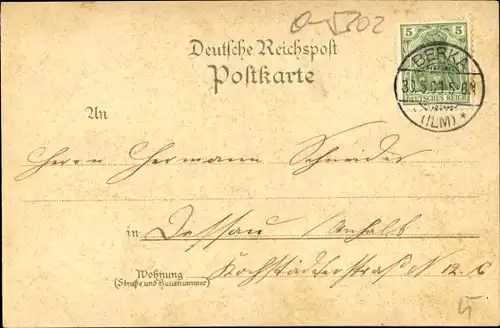 O-5302
Deutsche Reichspost
Postkarte
5 5
BERKA
30.5.03.5-6N
(ILM) *
DEUTSCHES REICH
An
Herrn Hermann Schneider
in Dessau Anhalt
Wohnung
(Straße und Hausnummer)
N 12. c